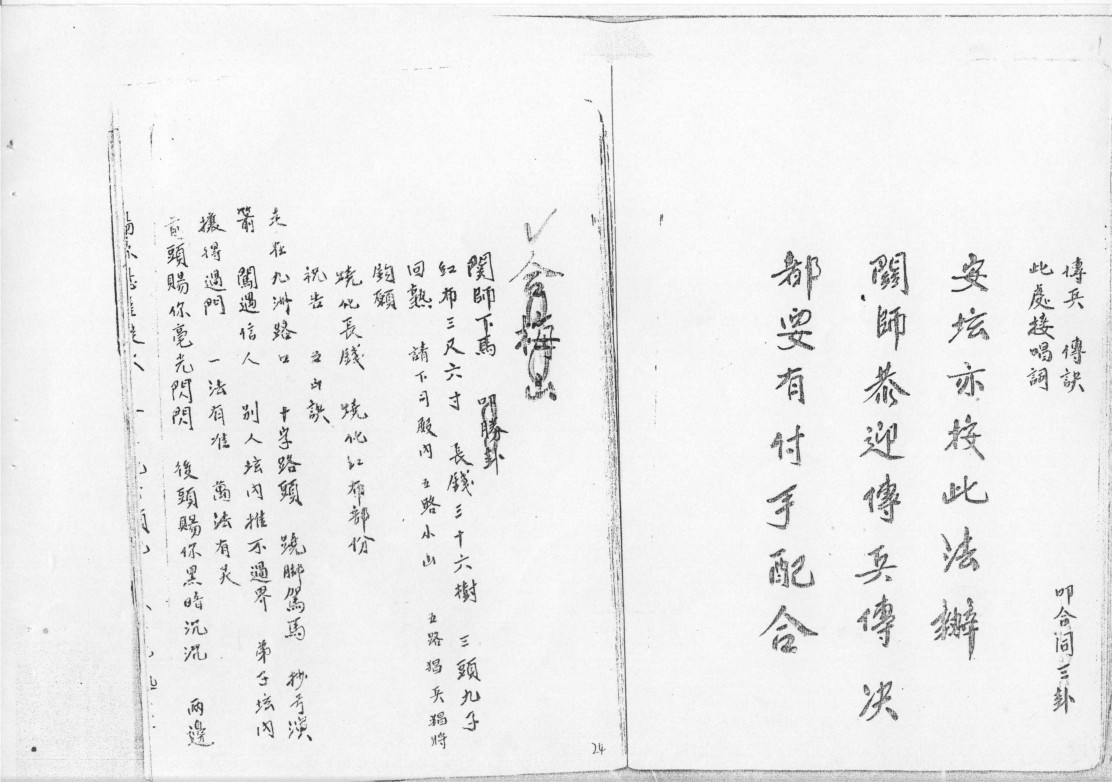 傳兵 傳訣
此處接唱詞 叩合同三卦
安坛亦按此法辦
關師恭迎傳兵傳决
都要有付手配合
合梅山
関師下馬 叩勝卦
紅布三尺六寸 長錢三十六樹 三頭九子
回熟 請下司殿内 五路小山 五路猖兵猖将
鈞願
燒化長錢 燒化紅布部份
祝告 五山訣
走在九洲路口 十字路頭 蹺脚駕馬 抄弓演
箭 闖過信人 别人坛内推不過界 弟子坛内
攘得過門 一法有准 萬法有灵
前頭賜你毫光閃閃 後頭賜你黑暗沉沉 兩邊
24